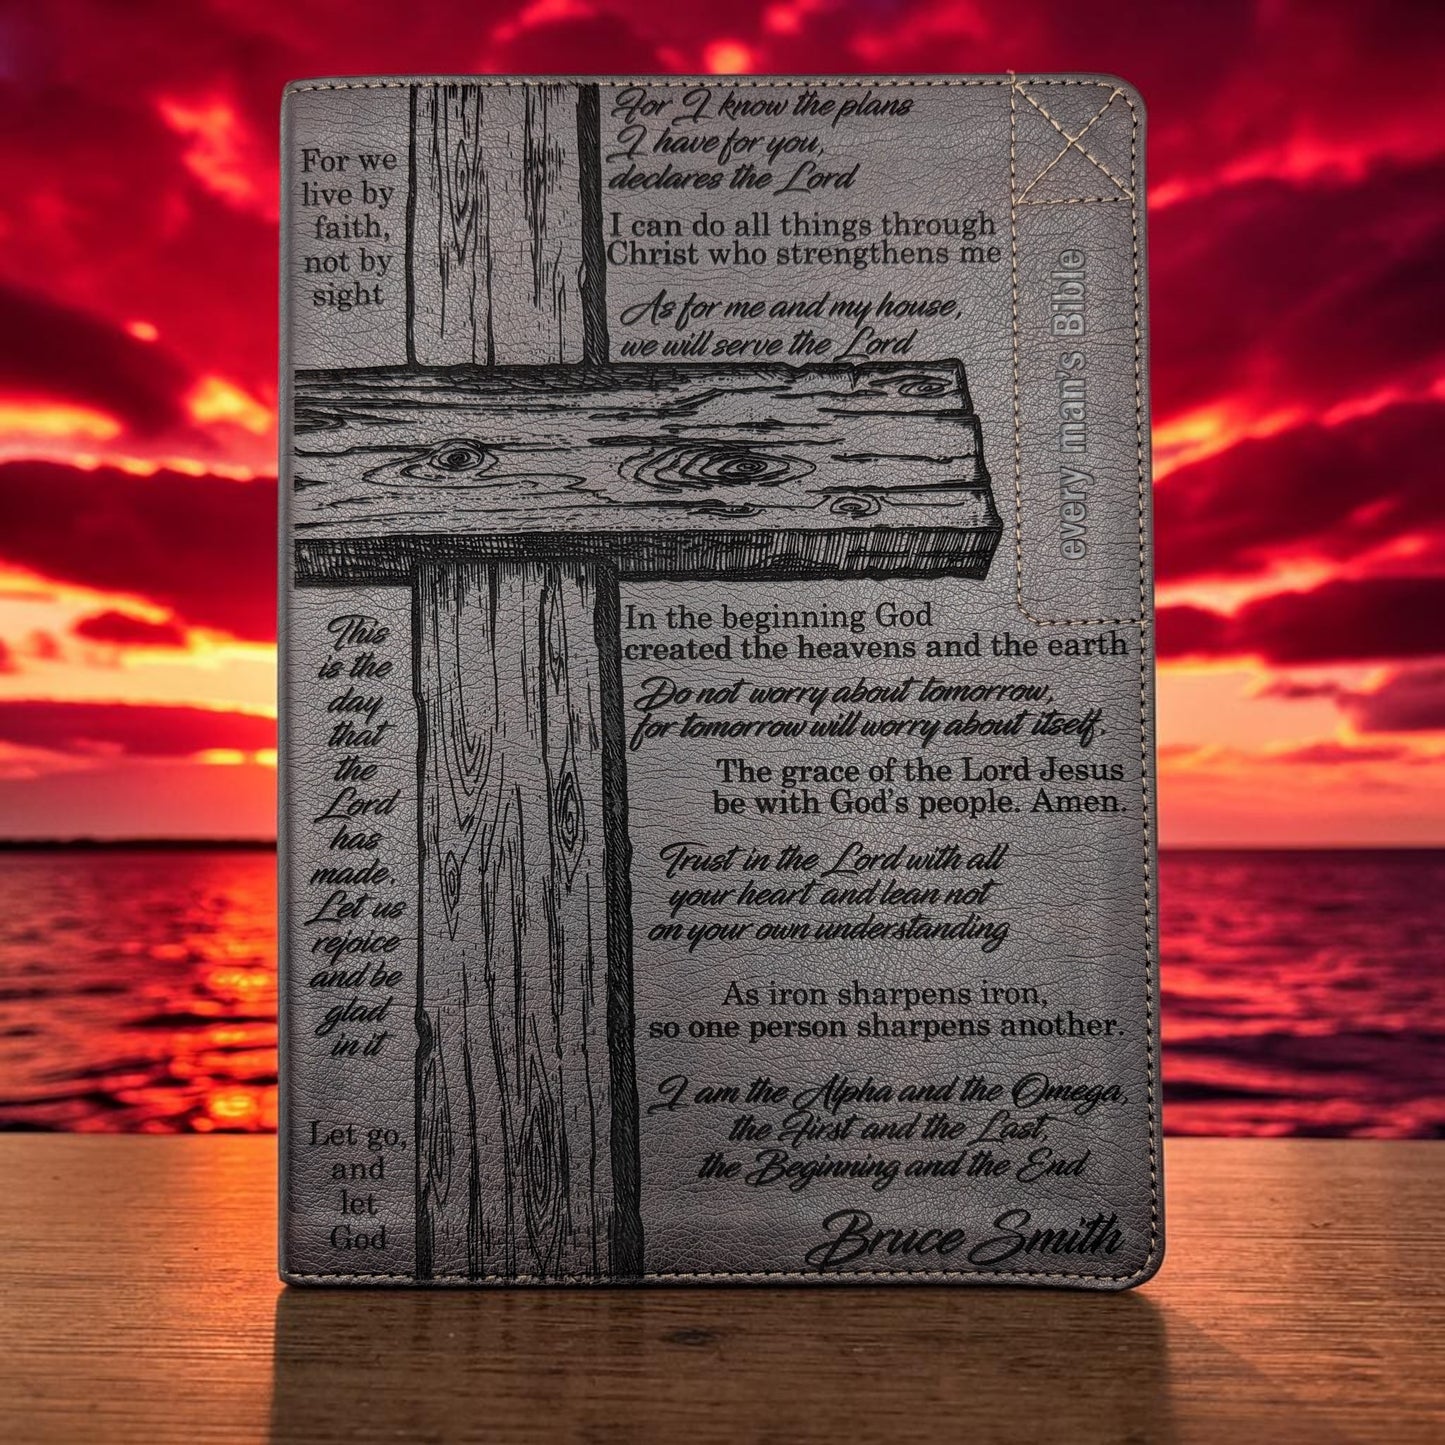 For we
live by
faith,
not by
sight
For I know the plans
I have for you,
declares the Lord
I can do all things through
Christ who strengthens me
As for me and my house,
we will serve the Lord
every man's Bible
This
is the
day
that
the
Lord
has
made.
Let us
rejoice
and be
glad
in it
Let go,
and
let
God
In the beginning God
created the heavens and the earth
Do not worry about tomorrow,
for tomorrow will worry about itself.
The grace of the Lord Jesus
be with God's people. Amen.
Trust in the Lord with all
your heart and lean not
on your own understanding
As iron sharpens iron,
so one person sharpens another.
I am the Alpha and the Omega,
the First and the Last,
the Beginning and the End
Bruce Smith